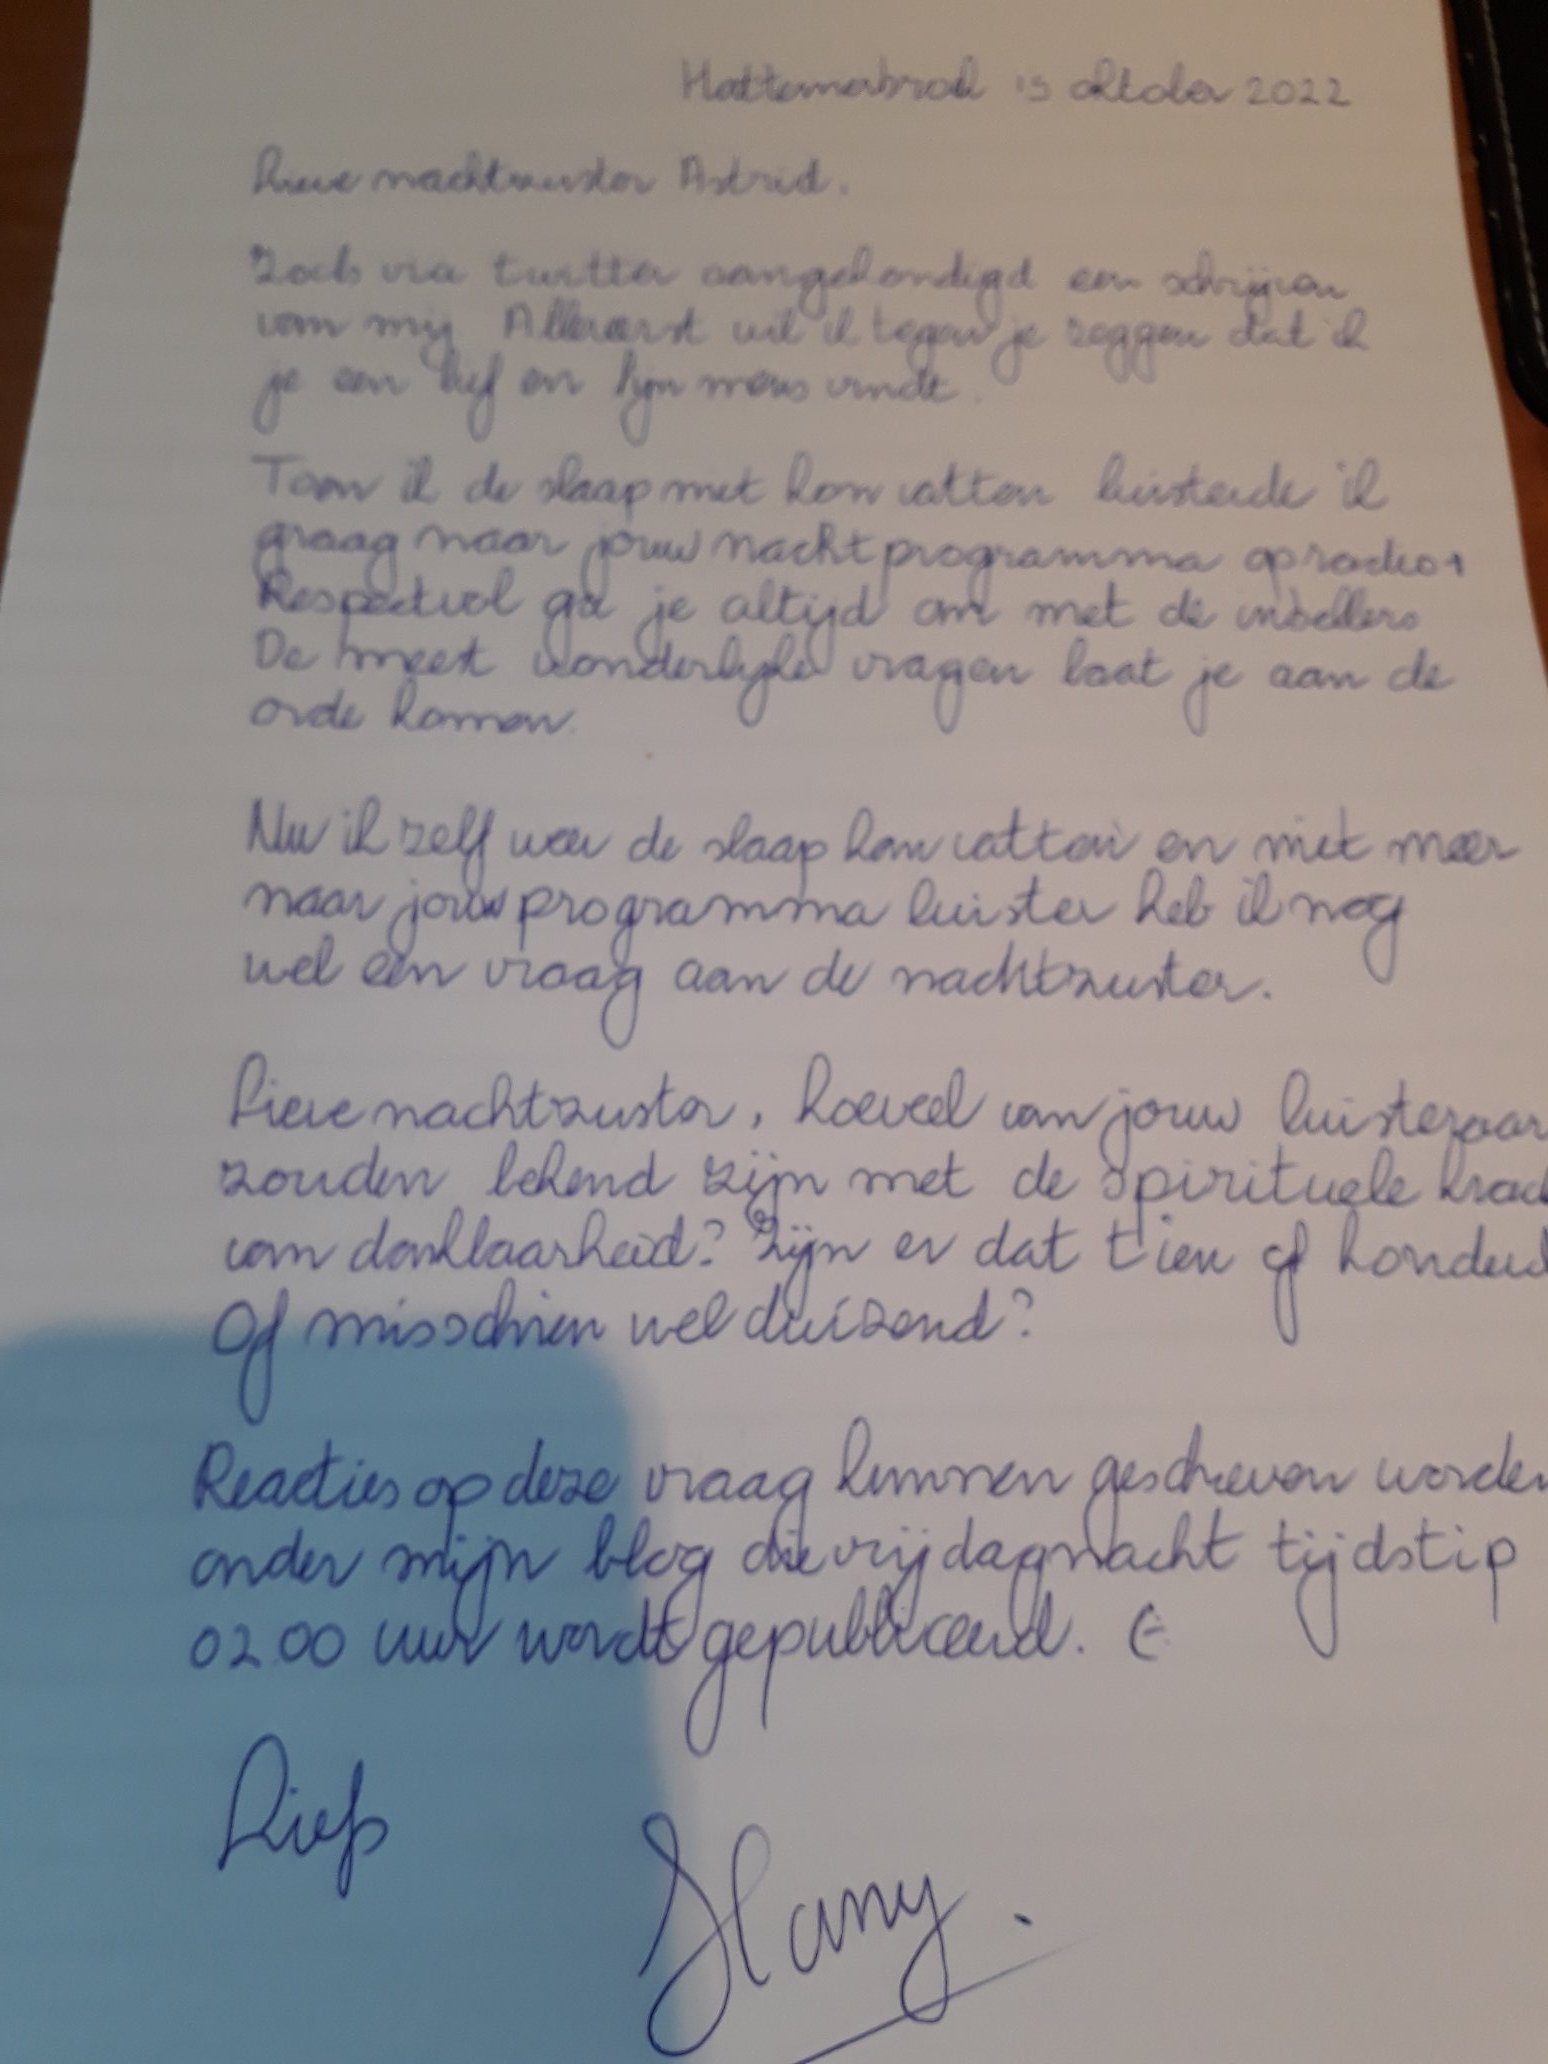 Hattemerbroek 15 oktober 2022
Lieve nachtzuster Astrid.
Zoals via twitter aangekondigd een schrijven
van mij Allereerst wil ik tegen je zeggen dat ik
je een lief en fijn mens vindt.
Toen ik de slaap niet kon vatten luisterde ik
graag naar jouw nachtprogramma op radio 1
Respectvol ga je altijd om met de inbellers
De meest wonderlijke vragen laat je aan de
orde komen.
Nu ik zelf weer de slaap kan vatten en niet meer
naar jouw programma luister heb ik nog
wel een vraag aan de nachtzuster.
Lieve nachtzuster, hoeveel van jouw luisteraar
zouden bekend zijn met de spirituele krach
van dankbaarheid? Zijn er dat tien of honderd
Of misschien wel duizend?
Reacties op deze vraag kunnen geschreven worden
onder mijn blog die vrijdagnacht tijdstip
02.00 uur wordt gepubliceerd.
Liefs
Hany.